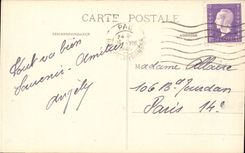 CARTE POSTALE
PAU
Tout va bien
Souvenir. Amitiés
Angèle
Madame Allaire
106 Bd Jourdan
Paris 14e